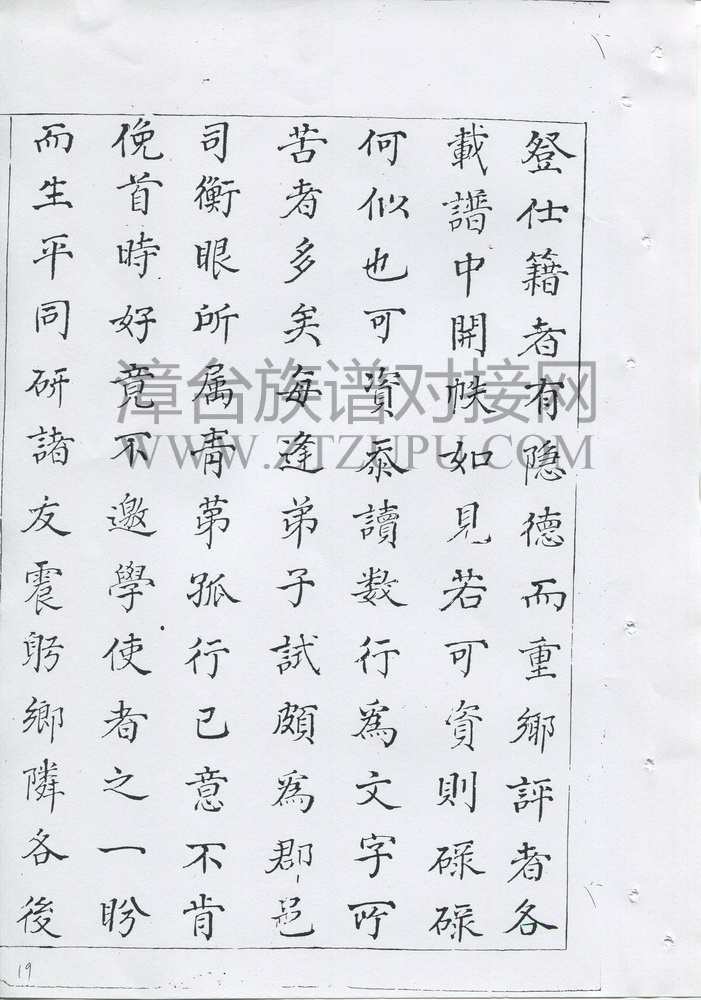 登仕籍者有隐德而重鄉評者各
載譜中開帙如見若可資則碌碌
何似也可資泰讀数行為文字所
苦者多矣每逢弟子試頗為郡邑
司衡眼所属青苐孤行已意不肯
俛首時好竟不邀學使者之一盼
而生平同研諸友震躬鄉隣各後
漳台族谱对接网
WWW.ZTZUPU.COM
19